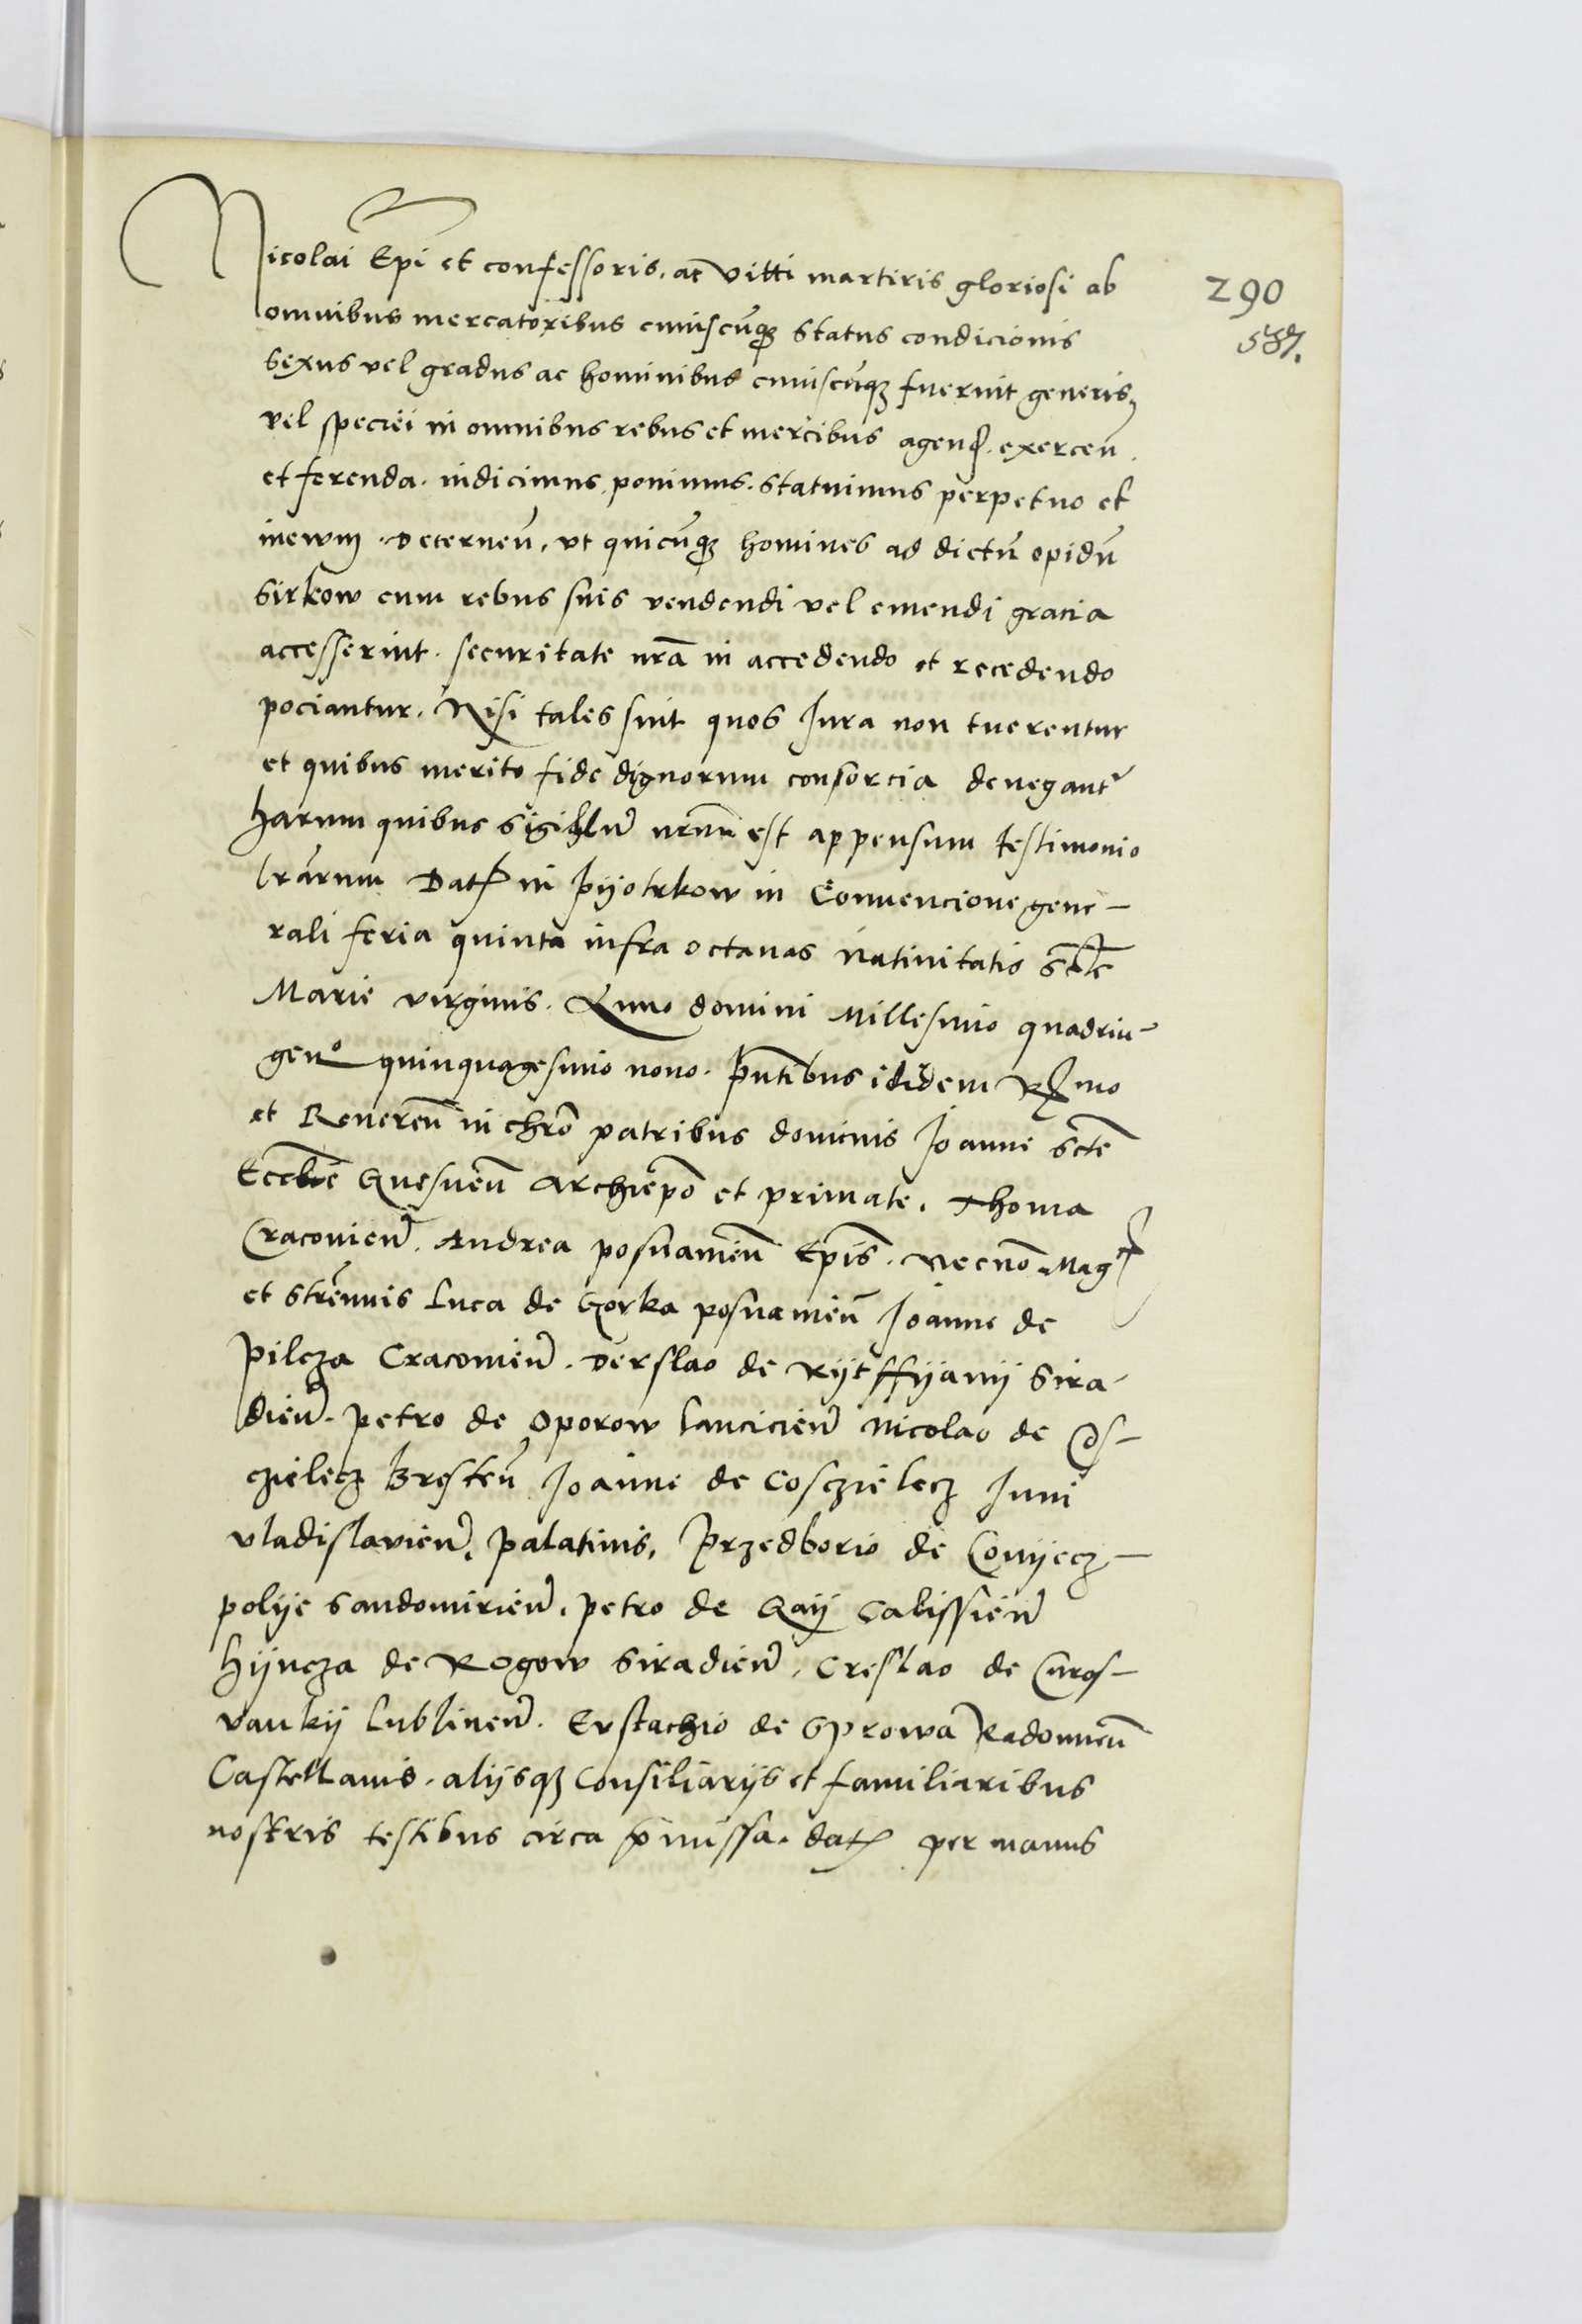 Nicolai Epi et confessoris. ac vitti martiris gloriosi ab
290
omnibus mercatoribus cuiuscūqȝ status condicionis
587.
sexus vel gradus ac hominibus cuiuscūqȝ fuerint generis,
vel speciei in omnibus rebus et mercibus agend. exercen̄.
et ferenda. indicimus. ponimus. statuimus perpetuo et
inewm. Decernen̄, vt quicūqȝ homines ad dictū opidū
Sirkow cum rebus suis vendendi vel emendi gracia
accesserint. securitate nrā in accedendo et recedendo
pociantur. Nisi tales sint quos Jura non tuerentur
et quibus merito fide dignorum consorcia denegantr
harum quibus sigillū nrūm est appensum testimonio
lrārum Dat in pijotrkow in Conuencione gene-
rali feria quinta infra octauas Natiuitatis Scte
Marie virginis. Anno domini Millesimo quadrin-
geno quinquagesimo nono. pn̄tibus ibidem Rmo
et Reueren̄ in chrō patribus dominis Joanne Scte
Ecclie Gnesnen̄ Archiepō et primate. Thoma
Cracouien̄. Andrea posnanien̄ Epis. Necnō Mag
et Strēnuis Luca de Gorka posnanien̄ Joanne de
Pilcza Cracouien̄. Derslao de Rijtffijanij Sira-
dien̄. Petro de Oporow Lancicien̄ Nicolao de Cos-
czielecz Bresten̄ Joanne de Cosczielecz Juni
vladislauien̄. Palatinis, Przedborio de Conijecz-
polije Sandomirien̄. Petro de Gaij Calissien̄
Hijncza de Rogow Siradien̄. Creslao de Curos-
vankij Lublinen̄. Eustachio de Sprowa Radomien̄
Castellanis. alijsqȝ Consiliarijs et familiaribus
nostris testibus circa pmissa. dat per manus